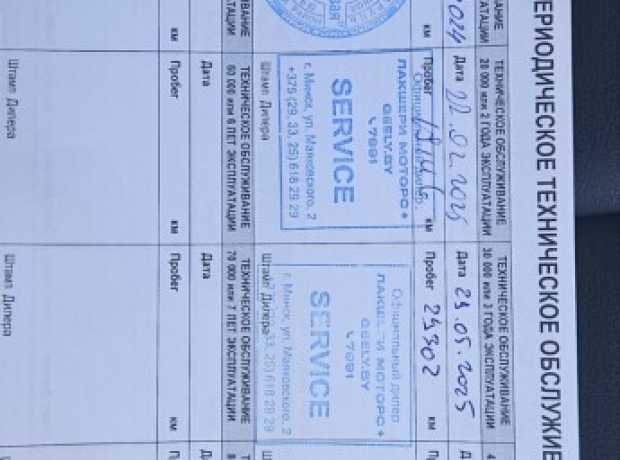 ПЕРИОДИЧЕСКОЕ ТЕХНИЧЕСКОЕ ОБСЛУЖИВ
АНИЕ
УАТАЦИИ
024
км
ТЕХНИЧЕСКОЕ ОБСЛУЖИВАНИЕ
20 000 или 2 ГОДА ЭКСПЛУАТАЦИИ
Дата 22.02.2025
Пробег км
Официальный дилер
ЛАКШЕРИ МОТОРС+
GEELY.BY
7091
SERVICE
г. Минск, ул. Маяковского, 2
+375 (29, 33, 25) 618 29 29
Штамп Дилера
ТЕХНИЧЕСКОЕ ОБСЛУЖИВАНИЕ
30 000 или 3 ГОДА ЭКСПЛУАТАЦИИ
Дата 23.05.2025
Пробег 29302 км
Официальный дилер
ЛАКШЕРИ МОТОРС+
GEELY.BY
7091
SERVICE
г. Минск, ул. Маяковского, 2
33, 25) 618 29 29
Штамп Дилера
км
ТЕХНИЧЕСКОЕ ОБСЛУЖИВАНИЕ
60 000 или 6 ЛЕТ ЭКСПЛУАТАЦИИ
Дата
Пробег км
Штамп Дилера
ТЕХНИЧЕСКОЕ ОБСЛУЖИВАНИЕ
70 000 или 7 ЛЕТ ЭКСПЛУАТАЦИИ
Дата
Пробег км
Штамп Дилера